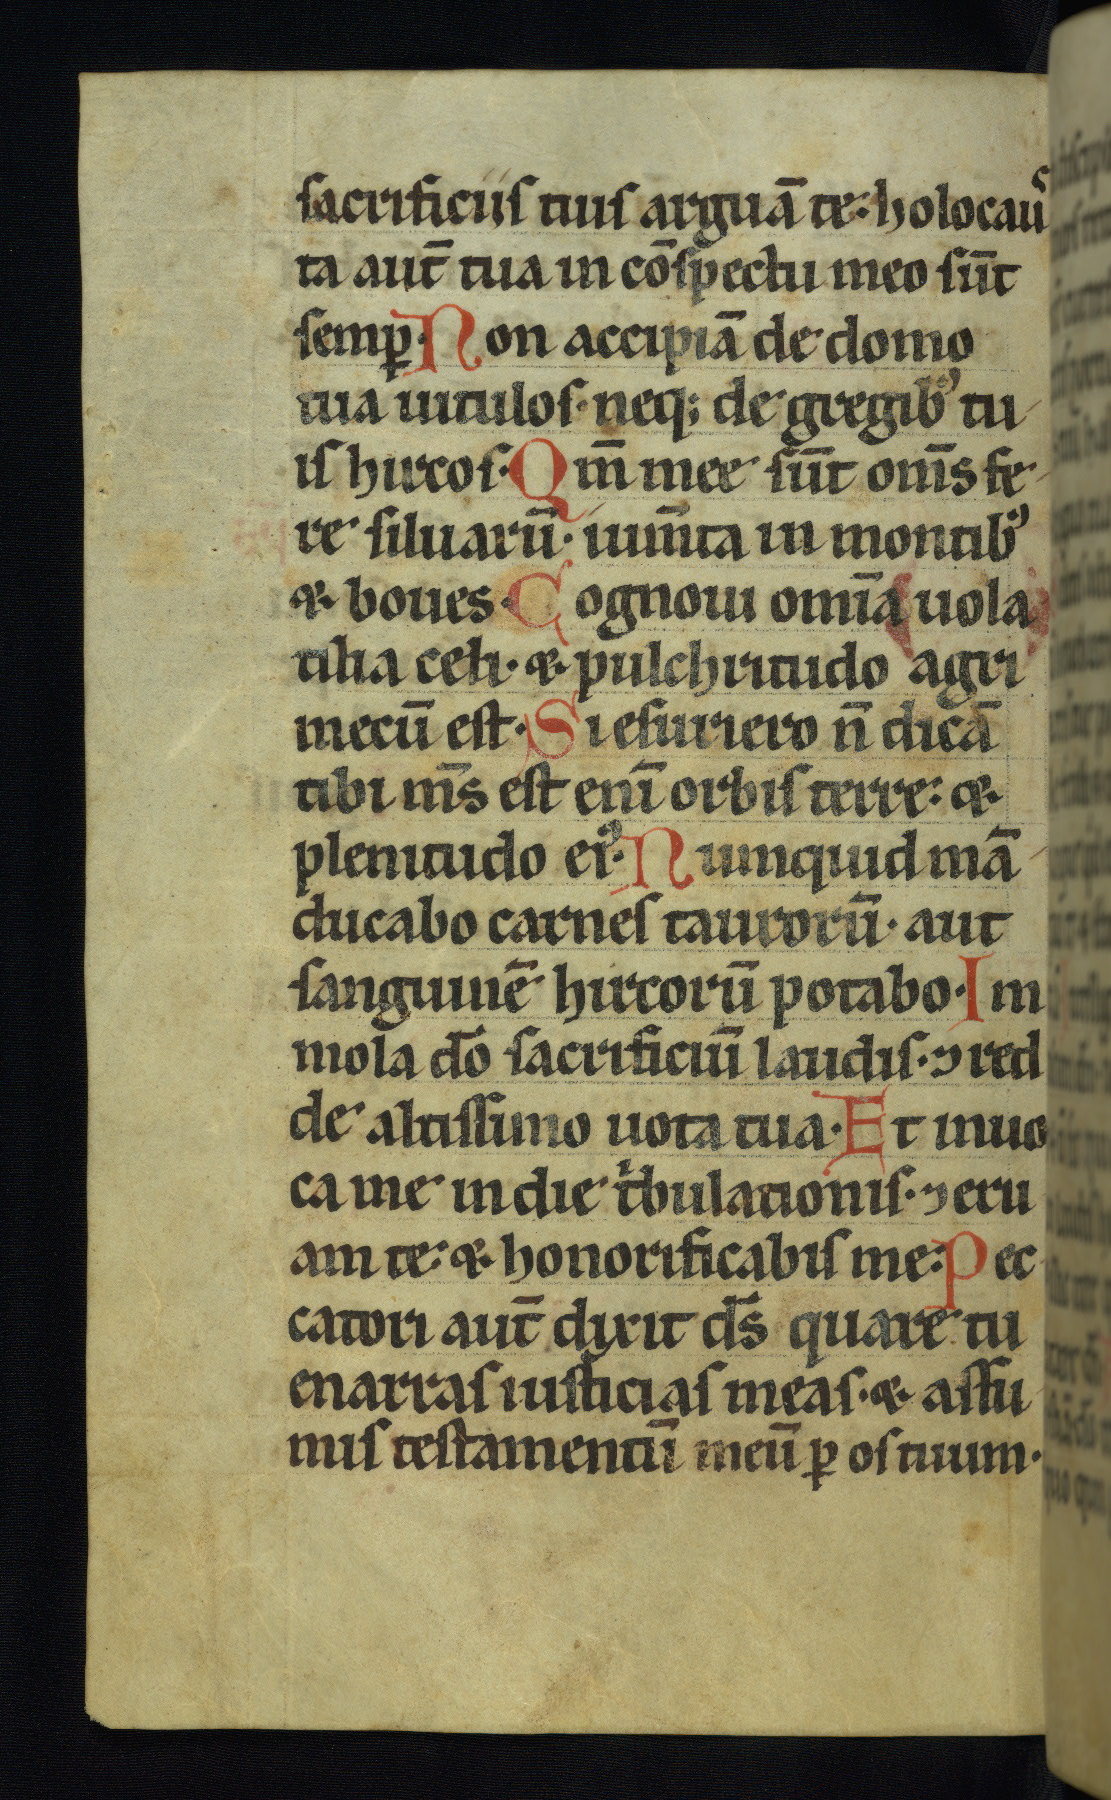 sacrificiis tuis arguā te: holocauͥs
ta aut̄ tua in cōspectu meo sūt
semꝑ. Non accipiā de domo
tua uitulos. neq; de gregibꝰ tu
is hircos. Qm̄ mee sūt om̄s fe
re siluarū. ium̄ta in montibꝰ
& boues. Cognoui omīa uola
tilia celi. & pulchritudo agri
mecū est. Si esuriero n̄ dicā
tibi m̄s est enī orbis terre: &
plenitudo eiꝰ. Numquid mā
ducabo carnes taurorū. aut
sanguinē hircorū potabo. Im
mola dō sacrificiū laudis. ⁊ red
de altissimo uota tua. Et inuo
ca me in die tͥbulationis. ⁊ eru
am te: & honorificabis me: Pec
catori aut̄ dixit ds̄ quare tu
enarras iusticias meas. & assu
mis testamentū meū ꝑ os tuum.